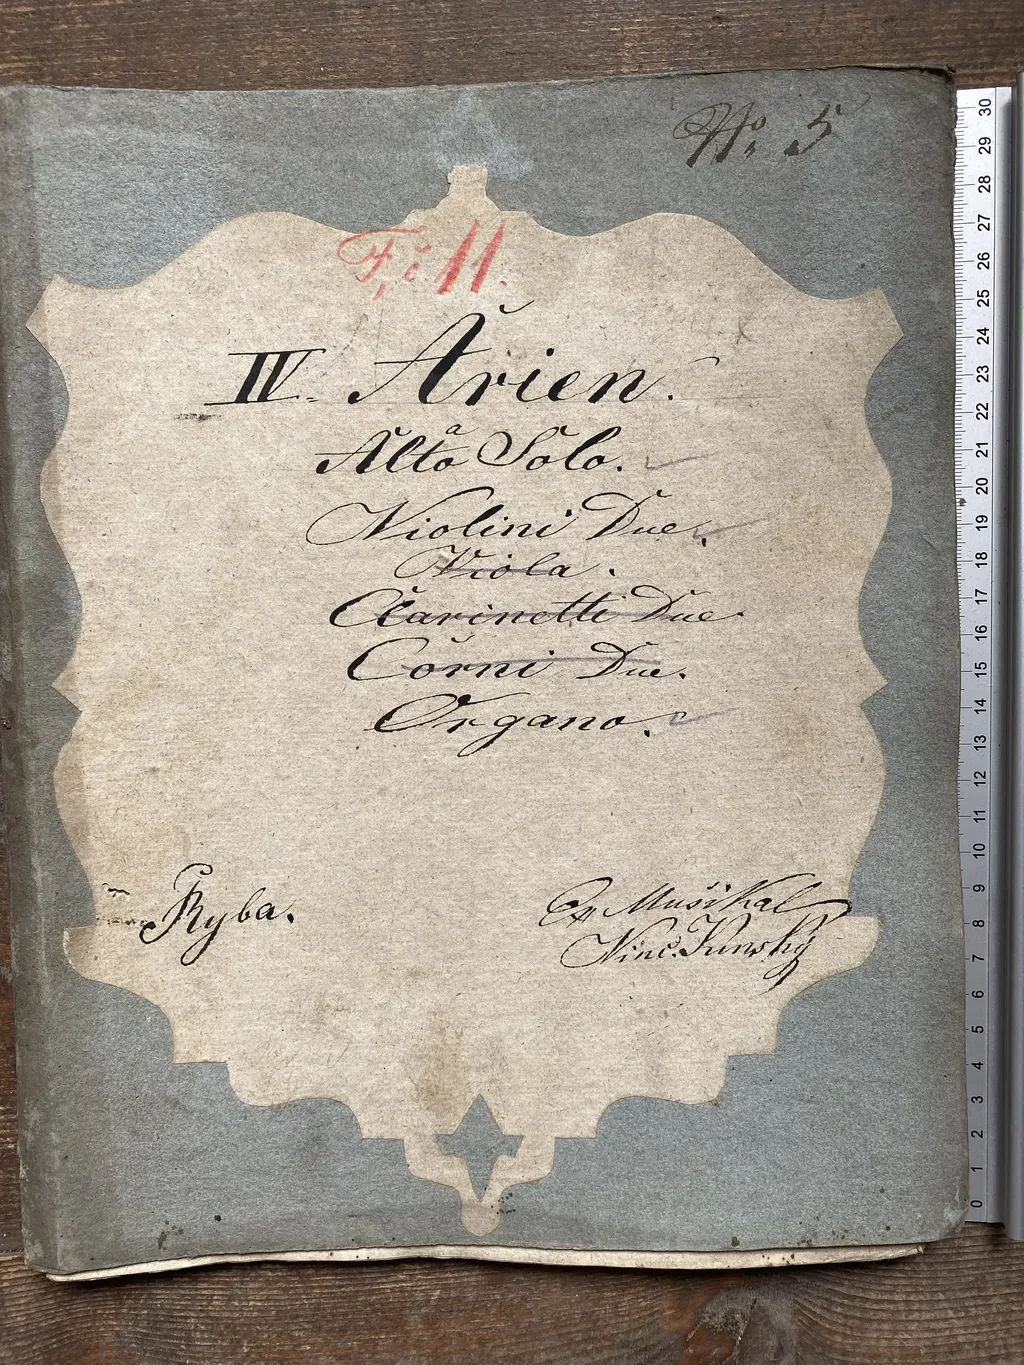 No. 5
F; i 11.
IV. Arien.
Alto Solo.
a
Violini Due.
Viola.
Clarinetti Due
Corni Due.
Organo.
Ryba.
Ex Musikal
Vinc. Kunský
30
29
28
27
26
25
24
23
22
21
20
19
18
17
16
15
14
13
12
11
10
9
8
7
6
5
4
3
2
1
0